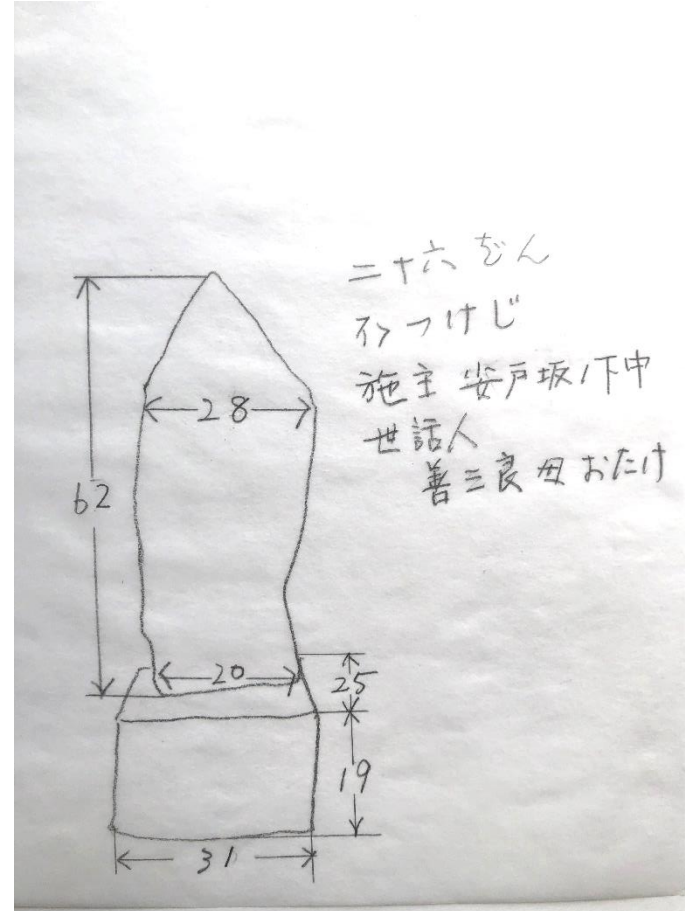 二十六ばん
いつけじ
施主 安戸坂ノ下中
世話人
善三良母おたけ
28
62
20
25
19
31